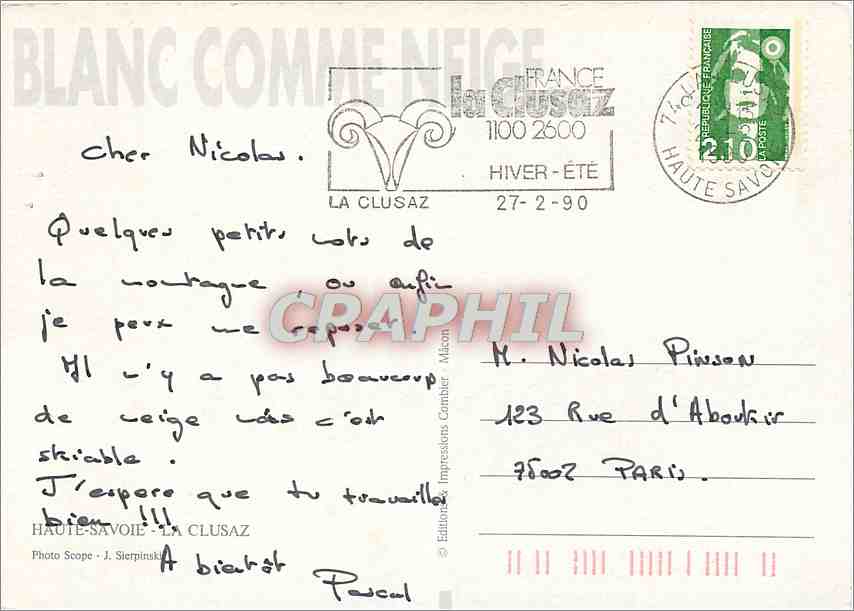 BLANC COMME NEIGE
FRANCE
la Clusaz
1100 2600
HIVER - ÉTÉ
LA CLUSAZ
27-2-90
HAUTE SAVOIE
RÉPUBLIQUE FRANÇAISE
2,10
LA POSTE
Cher Nicolas.
Quelques petits mots de
la montagne, ou enfin
je peux me reposer.
Il n'y a pas beaucoup
de neige mais c'est
skiable.
J'espere que tu travailles
bien !!!.
A bientôt
Pascal
HAUTE-SAVOIE - LA CLUSAZ
Photo Scope - J. Sierpinski
© Editions & Impressions Combier - Mâcon
CPARPHIL
M. Nicolas Pinson
123 Rue d'Aboukir
75002 PARIS.